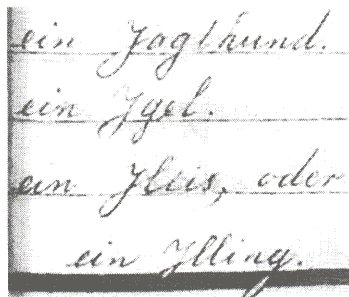 ein Jagthund.
ein Jgel.
ein Jleis, oder
ein Jlling.